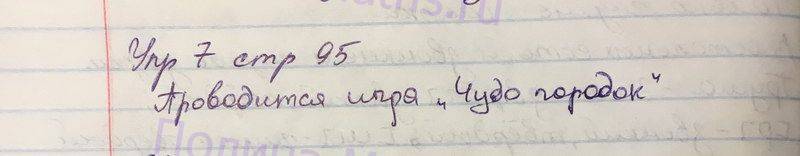 Упр 7 стр 95
Проводится игра „Чудо городок"